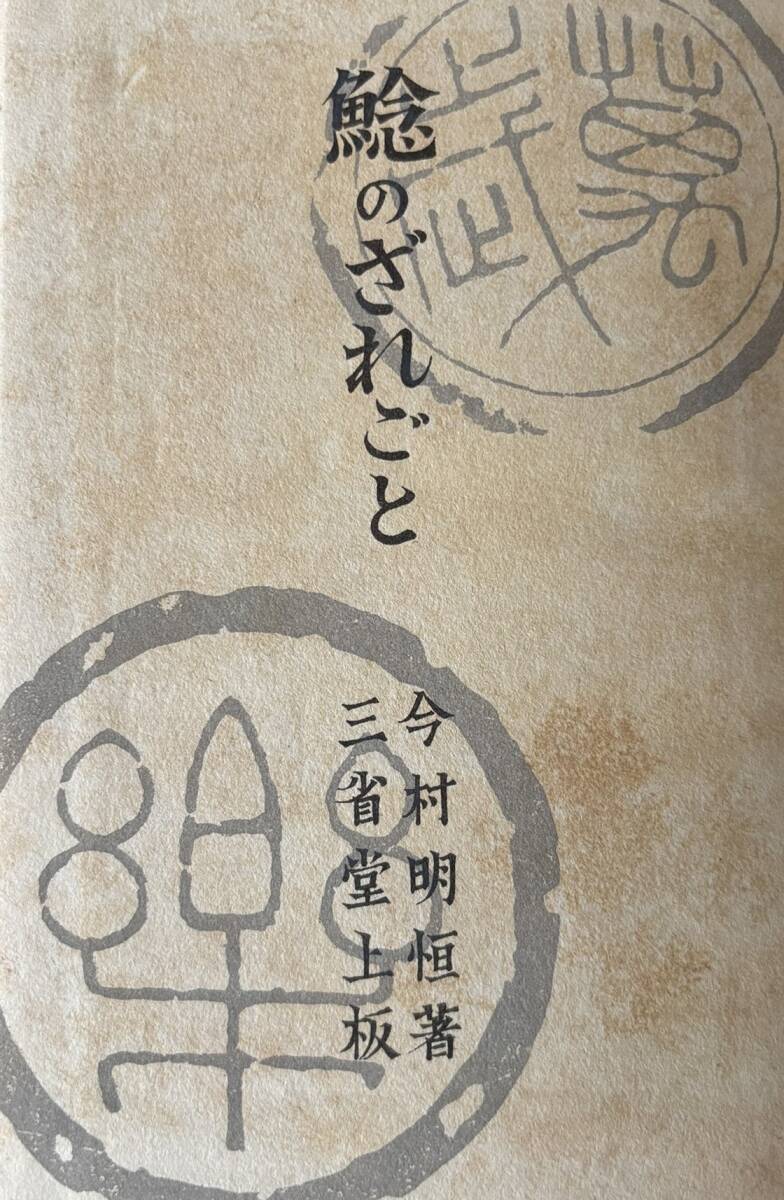 鯰のざれごと
今村明恒著
三省堂上板